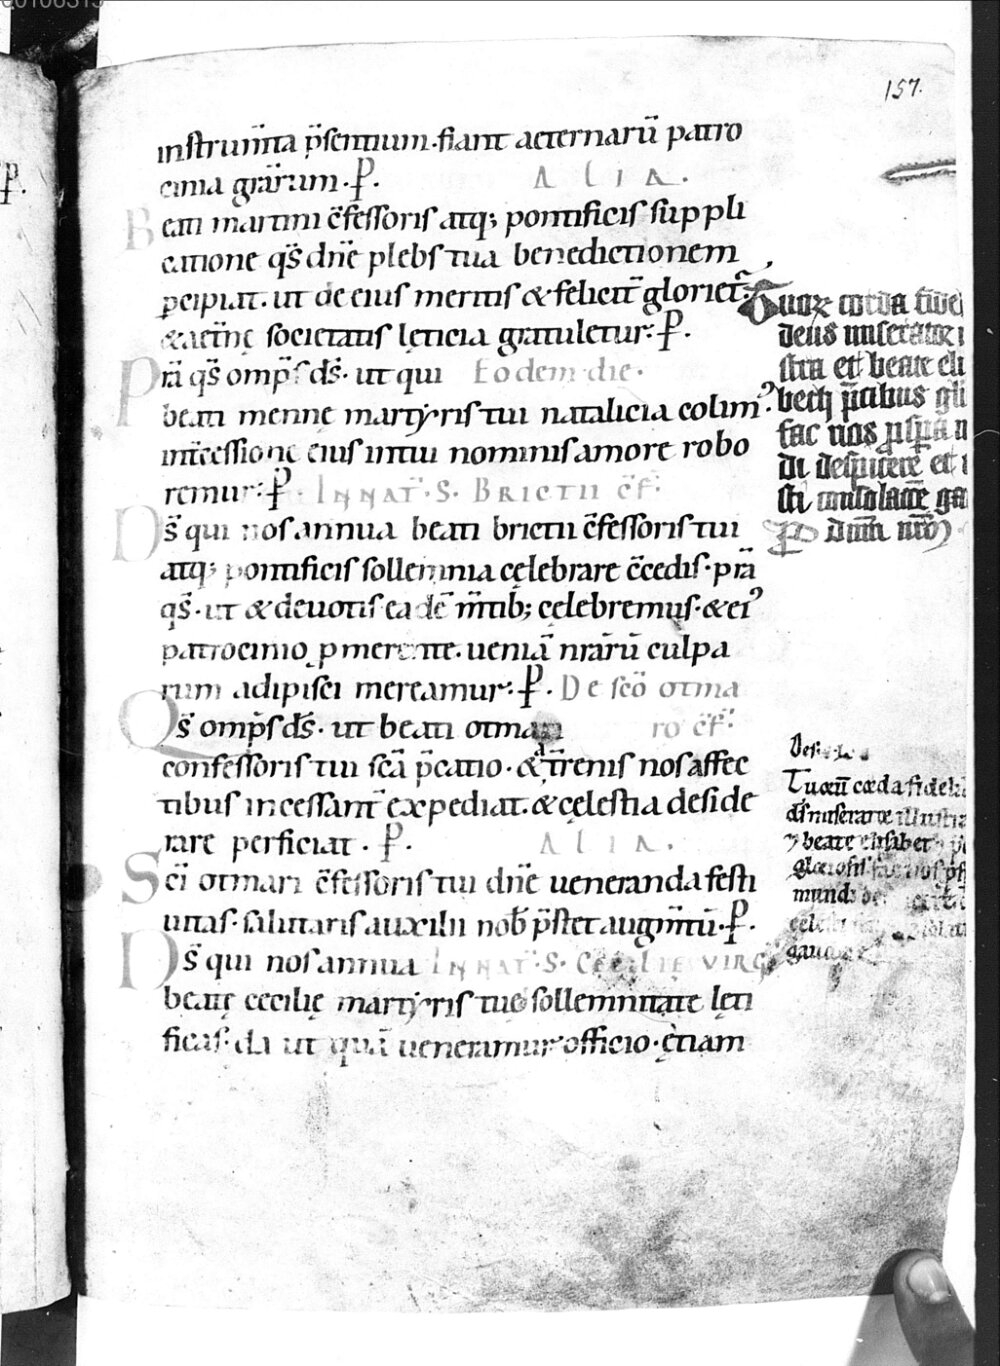 157.
instrum̄ta p̄sentium·fiant aeternarū patro
cinia gr̄arum·P.
ALIA.
Beati martini c̄fessoris atq; pontificis suppli
catione qs̄ dn̄e plebs tua benedictionem
ꝑcipiat. ut de eius meritis & felicit̄ gloriet̄:
& aet̄nę societatis lęticia gratuletur:P.
Pr̄a qs̄ omp̄s ds̄· ut qui Eodem·die·
beati mennę martyris tui natalicia colim᾿
int̄cessione eius in tui nominis amore robo
remur:P. IN NAT̄·S·BRICTII c̄f:
Ds̄ qui nos annua beati brictii c̄fessoris tui
atq; pontificis sollemnia cęlebrare c̄cedis·pr̄a
qs̄·ut & deuotis eadē m̄tib; cęlebremus·&ei᾿
patrocinio ꝓmerente.ueniā nr̄arū culpa
rum adipisci mereamur:P. De scō otma
Qs̄ omp̄s ds̄· ut beati otmari ro c̄f:
confessoris tui scā p̄catio·& t̄renis nos affec
tibus incessant̄ expediat.&cęlestia deside
rare perficiat·P. ALIA.
Sc̄i otmari c̄fessoris tui dn̄e ueneranda festi
uitas·salutaris auxilii nob̄ p̄stet augm̄tū·P.
Ds̄ qui nos annua IN NAT̄·S·CECILIE VIRG
beatę cecilię martyris tuę sollemnitate lęti
ficas·da ut quā ueneramur officio·ętiam
Tuorꝝ corda fidel
deus miserator i
stra et beate eli
beth p̄cibus gl
fac nos ꝓspera
di despicere et
sti consolac̄o̅e ga
P dn̄m nr̄m
Tuorū corda fideli
ds̄ miserator illustra
beate elisabet
gloriosis fac nos
mundi
celesti
gaud